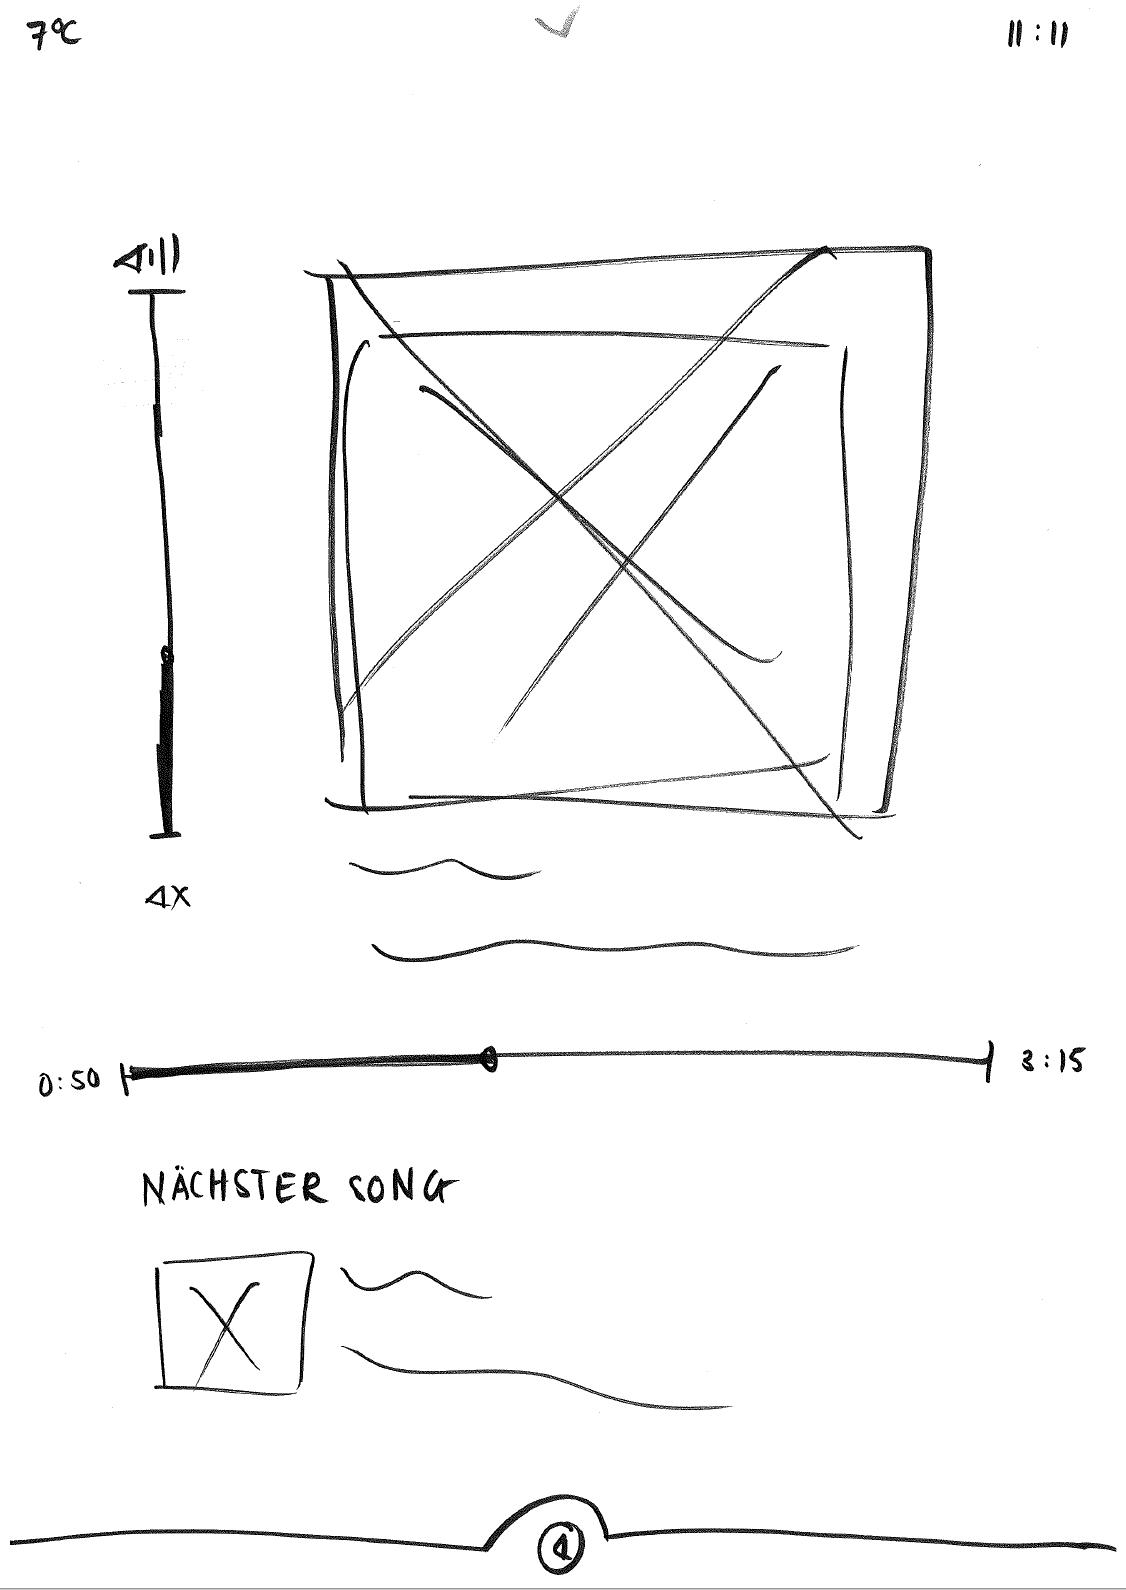 7°C
11:11
0:50
3:15
NÄCHSTER SONG